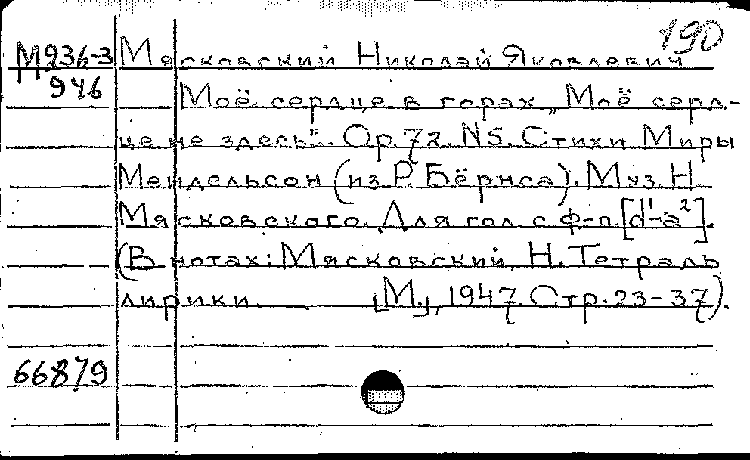 190
М936-3 Мясковский Николай Яковлевич
946 Моё сердце в горах „Моё серд-
це не здесь". Ор.72. N5. Стихи Миры
Мендельсон (из Р. Бёрнса). Муз. Н.
Мясковского. Для гол. с ф-п. [d¹-a²].
(В нотах: Мясковский, Н. Тетрадь
лирики. [М.], 1947. Стр.23-37).
66879